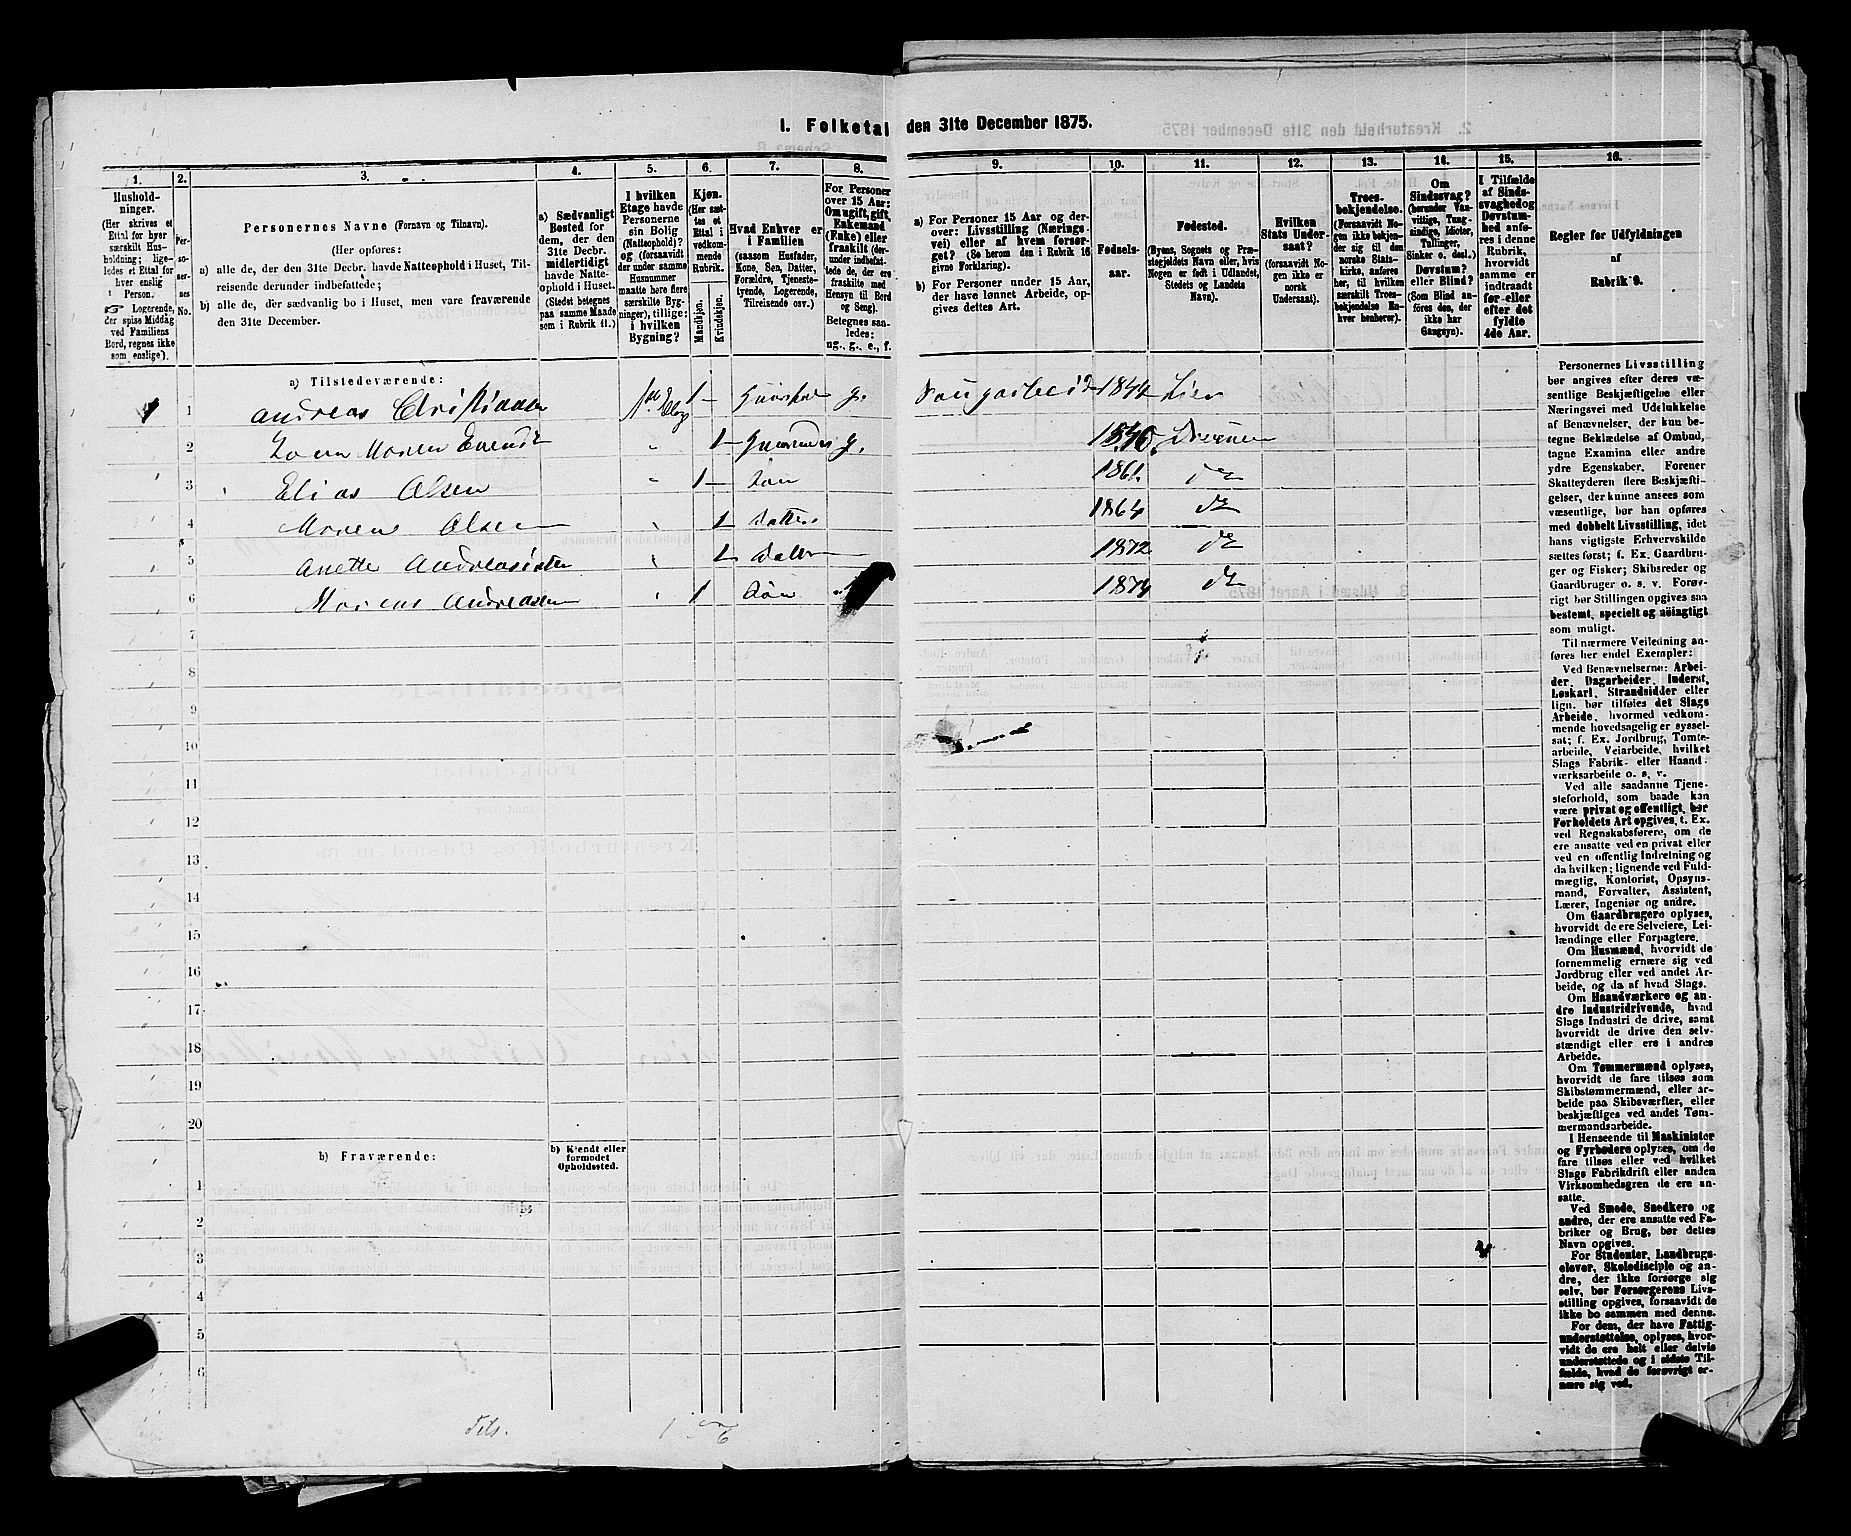 I. Folketal den 31te December 1875.
1. 2. 3. 4. 5. 6. 7. 8. 9. 10. 11. 12. 13. 14. 15. 16.
Hushold-
ninger.
(Her skrives et
Ettal for hver
særskilt Hus-
holdning; lige-
ledes et Ettal for
hver enslig
Person.
Logerende,
der spise Middag
ved Familiens
Bord, regnes ikke
som enslige).
Per-
soner-
nes
No.
Personernes Navne (Fornavn og Tilnavn).
(Her opføres:
a) alle de, der den 31te Decbr. havde Natteophold i Huset, Til-
reisende derunder indbefattede;
b) alle de, der sædvanlig bo i Huset, men vare fraværende
den 31te December.
a) Sædvanligt
Bosted for
dem, der den
31te Decbr.
midlertidigt
havde Natte-
ophold i Huset.
(Stedet betegnes
paa samme Maade
som i Rubrik 11.)
I hvilken
Etage havde
Personerne
sin Bolig
(Natteophold)?
og (forsaavidt
der under samme
Husnummer
maatte høre flere
særskilte Byg-
ninger), tillige:
i hvilken
Bygning?
Kjøn.
(Her sæt-
tes et
Ettal i
vedkom-
mende
Rubrik.
Mandkjøn.
Kvindekjøn.
Hvad Enhver er
i Familien
(saasom Husfader,
Kone, Søn, Datter,
Forældre, Tjeneste-
tyende, Logerende,
Tilreisende osv.)
For Personer
over 15 Aar:
Om ugift, gift,
Enkemand
(Enke) eller
fraskilt (der-
under indbefat-
tede de, der ere
fraskilte med
Hensyn til Bord
og Seng).
Betegnes saa-
ledes:
ug., g., e., f.
a) For Personer 15 Aar og der-
over: Livsstilling (Nærings-
vei) eller af hvem forsør-
get? (Se herom den i Rubrik 16
givne Forklaring).
b) For Personer under 15 Aar,
der have lønnet Arbeide, op-
gives dettes Art.
Fødsels-
aar.
Fødested.
(Byens, Sognets og Præ-
stegjeldets Navn eller, hvis
Nogen er født i Udlandet,
Stedets og Landets
Navn).
Hvilken
Stats Under-
saat?
(forsaavidt No-
gen ikke er
norsk
Undersaat).
Troes-
bekjendelse.
(Forsaavidt No-
gen ikke bekjen-
der sig til den
norske Stats-
kirke, anføres
her, til hvilken
særskilt Troes-
bekjendelse En-
hver henhører).
Om
Sindssvag?
(herunder Van-
vittige, Tung-
sindige, Idioter,
Tullinger,
Sinker o. desl.)
Døvstum?
eller Blind?
(Som Blind an-
føres den, der
ikke har
Gangsyn).
I Tilfælde
af Sinds-
svaghed og
Døvstum-
hed anfø-
res i denne
Rubrik,
hvorvidt
samme er
indtraadt
før eller
efter det
fyldte
4de Aar.
Regler for Udfyldningen
af
Rubrik 9.
a) Tilstedeværende:
1 1 Andreas Christiansen 1 g. 1844 Lier
2 Maren 1 g.
3 Elias Olsen 1 Søn 1861
4 Maren Olsen 1 Datter 1864
5 Anette 1 Datter 1872
6 Andreasen 1 Søn 1874
7
8
9
10
11
12
13
14
15
16
17
18
19
20
b) Fraværende:
b) Kjendt eller
formodet
Opholdssted.
1
2
3
4
5
6
Tils.
Personernes Livsstilling
bør angives efter deres væ-
sentlige Beskjæftigelse eller
Næringsvei med Udelukkelse
af Benævnelser, der kun be-
tegne Beklædelse af Ombud,
tagne Examina eller andre
ydre Egenskaber. Forener
Skatteyderen flere Beskjæfti-
gelser, der kunne ansees som
væsentlige, bør han opføres
med dobbelt Livsstilling, idet
hans vigtigste Erhvervskilde
sættes først; f. Ex. Gaardbru-
ger og Fisker; Skibsreder og
Gaardbruger o. s. v. Forøv-
rigt bør Stillingen opgives saa
bestemt, specielt og nøiagtigt
som muligt.
Til nærmere Veiledning an-
føres her endel Exempler:
Ved Benævnelserne: Arbei-
der, Dagarbeider, Inderst,
Løskarl, Strandsidder eller
lign. bør tilføies det Slags
Arbeide, hvormed vedkom-
mende hovedsagelig er syssel-
sat; f. Ex. Jordbrug, Tomte-
arbeide, Veiarbeide, hvilket
Slags Fabrik- eller Haand-
værksarbeide o. s. v.
Ved alle saadanne Tjene-
steforhold, som baade kan
være privat og offentligt, bør
Forholdets Art opgives, t. Ex.
ved Regnskabsførere, om de
ere ansatte ved en privat eller
ved en offentlig Indretning og
da hvilken; lignende ved Fuld-
mægtig, Kontorist, Opsyns-
mand, Forvalter, Assistent,
Lærer, Ingeniør og andre.
Om Gaardbrugere oplyses,
hvorvidt de ere Selveiere, Lei-
lændinge eller Forpagtere.
Om Husmænd, hvorvidt de
fornemmelig ernære sig ved
Jordbrug eller ved andet Ar-
beide, og da af hvad Slags.
Om Haandværkere og an-
dre Industridrivende, hvad
Slags Industri de drive, samt
hvorvidt de drive den selv-
stændigt eller ere i andres
Arbeide.
Om Tømmermænd oplyses,
hvorvidt de fare tilsøs som
Skibstømmermænd, eller ar-
beide paa Skibsværfter, eller
beskjæftiges ved andet Tøm-
mermandsarbeide.
I Henseende til Maskinister
og Fyrbødere oplyses, om de
fare tilsøs eller ved hvilket
Slags Fabrikdrift eller anden
Virksomhedsgren de ere an-
satte.
Ved Smede, Snedkere og
andre, der ere ansatte ved Fa-
briker og Brug, bør dettes
Navn opgives.
For Studenter, Landbrugs-
elever, Skoledisciple og an-
dre, der ikke forsørge sig
selv, bør Forsørgerens Livs-
stilling opgives, forsaavidt de
ikke bo sammen med denne.
For dem, der have Fattig-
understøttelse, oplyses, hvor-
vidt de ere helt eller delvis
understøttede og i sidste Til-
fælde, hvad de forøvrigt er-
nære sig ved.